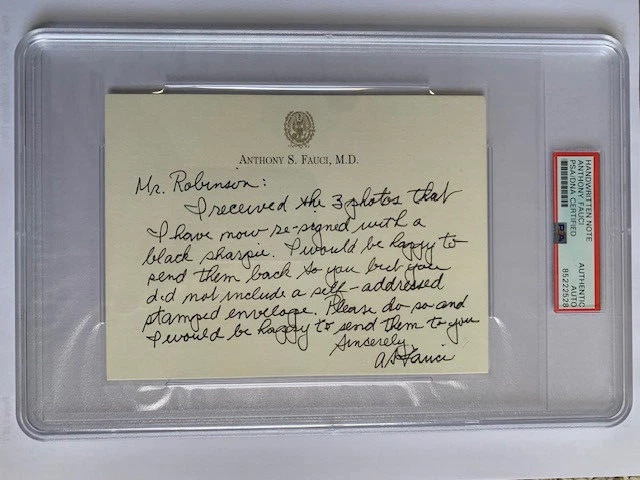 ANTHONY S. FAUCI, M.D.
Mr. Robinson:
I received the 3 photos that
I have now re-signed with a
black sharpie. I would be happy to
send them back to you but you
did not include a self-addressed
stamped envelope. Please do so and
I would be happy to send them to you
Sincerely,
AS Fauci
HANDWRITTEN NOTE
ANTHONY FAUCI
PSA/DNA CERTIFIED
PSA
AUTHENTIC
AUTO
85222528